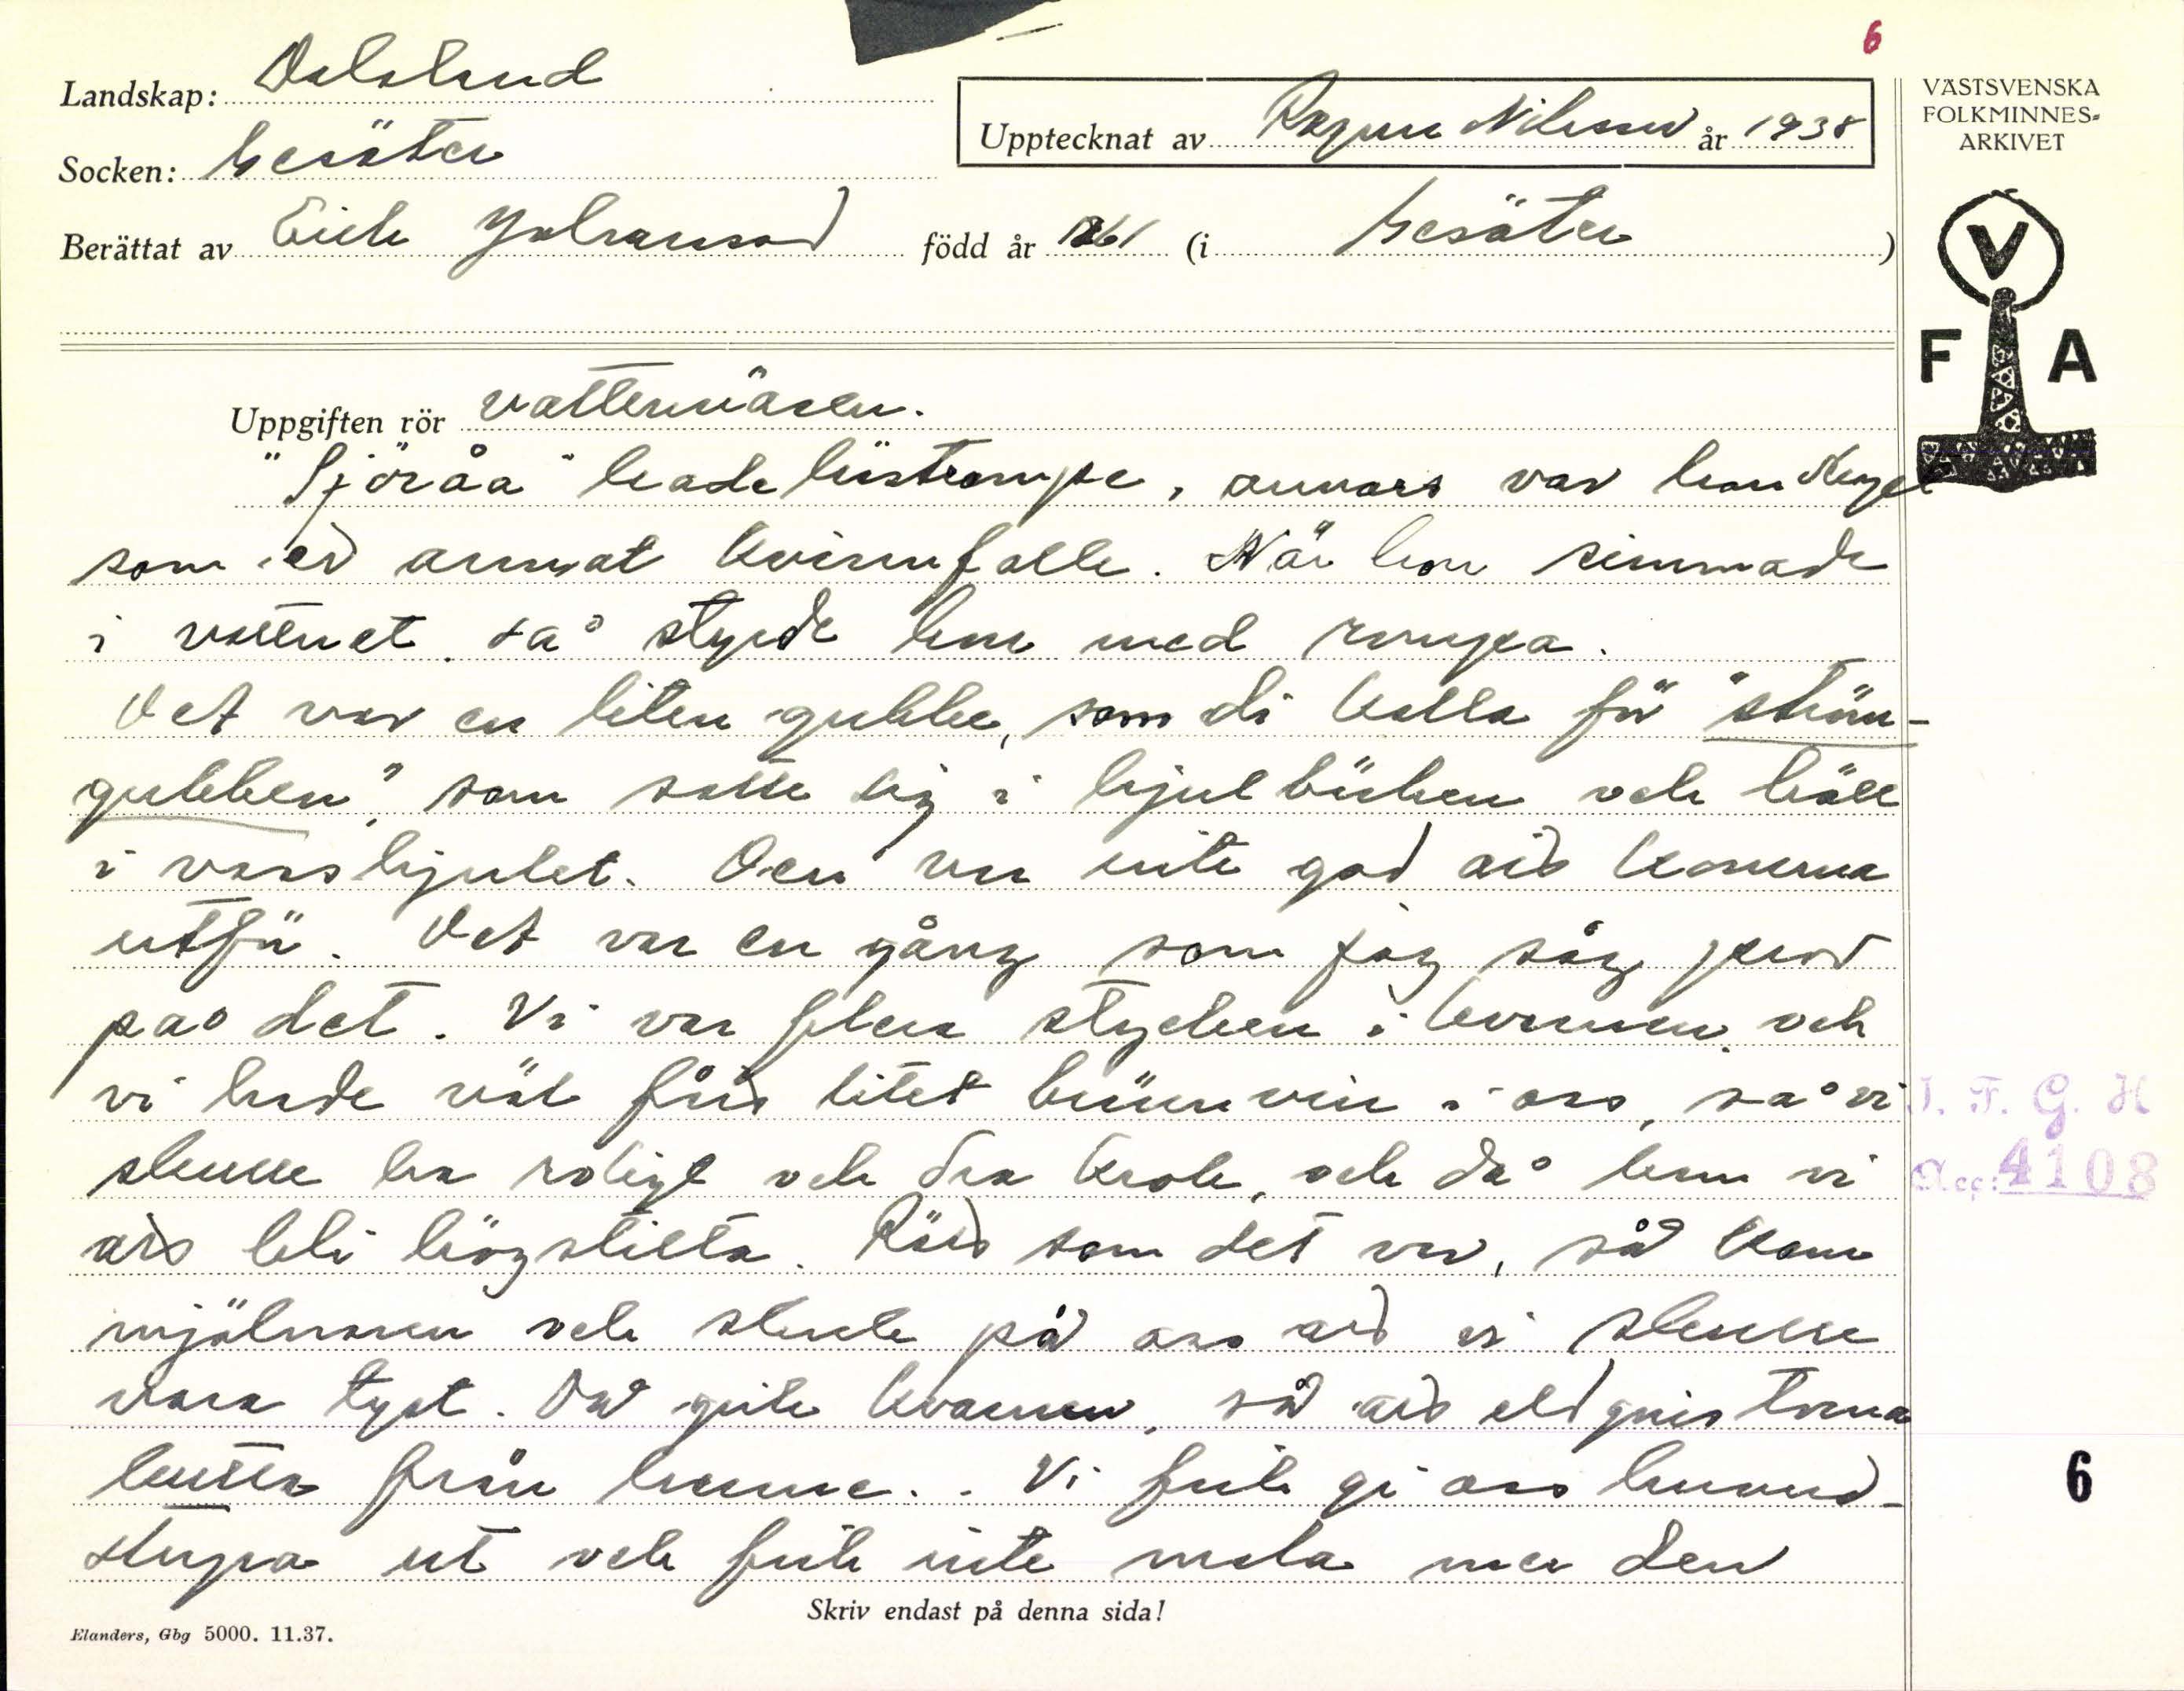 6
Landskap: Dalsland
Upptecknat av Ragnar Nilsson år 1938
VÄSTSVENSKA
FOLKMINNES-
ARKIVET
Socken: Gesäter
Berättat av Erik Johansson född år 1861 (i Gesäter)
V
F A
Uppgiften rör vattenväsen.
"Sjöråa" hade hästrumpe, annars var hon skapt
som ed annat kvinnfolk. När hon simmade
i vattnet så styrde hon med rumpa.
Det var en liten gubbe, som di kalla för "ström-
gubben", som satte sig i hjulbäcken och höll
i vasshjulet. Den var inte god att komma
utför. Det var en gång som jag såg prov
på det. Vi var flera stycken i kvarnen och
vi hade väl fått litet brännvin i oss, så vi
skulle ha roligt och dra krok, och då kom vi
att bli högstilta. Rätt som det var, så kom
mjölnaren och skrek på oss att vi skulle
vara tyst. Då gick kvarnen, så att eldgnistorna
lyste från henne. Vi fick gi oss huvud-
stupa ut och fick inte mala mer den
I. F. G. H
Acc: 4108
6
Skriv endast på denna sida!
Elanders, Gbg 5000. 11.37.